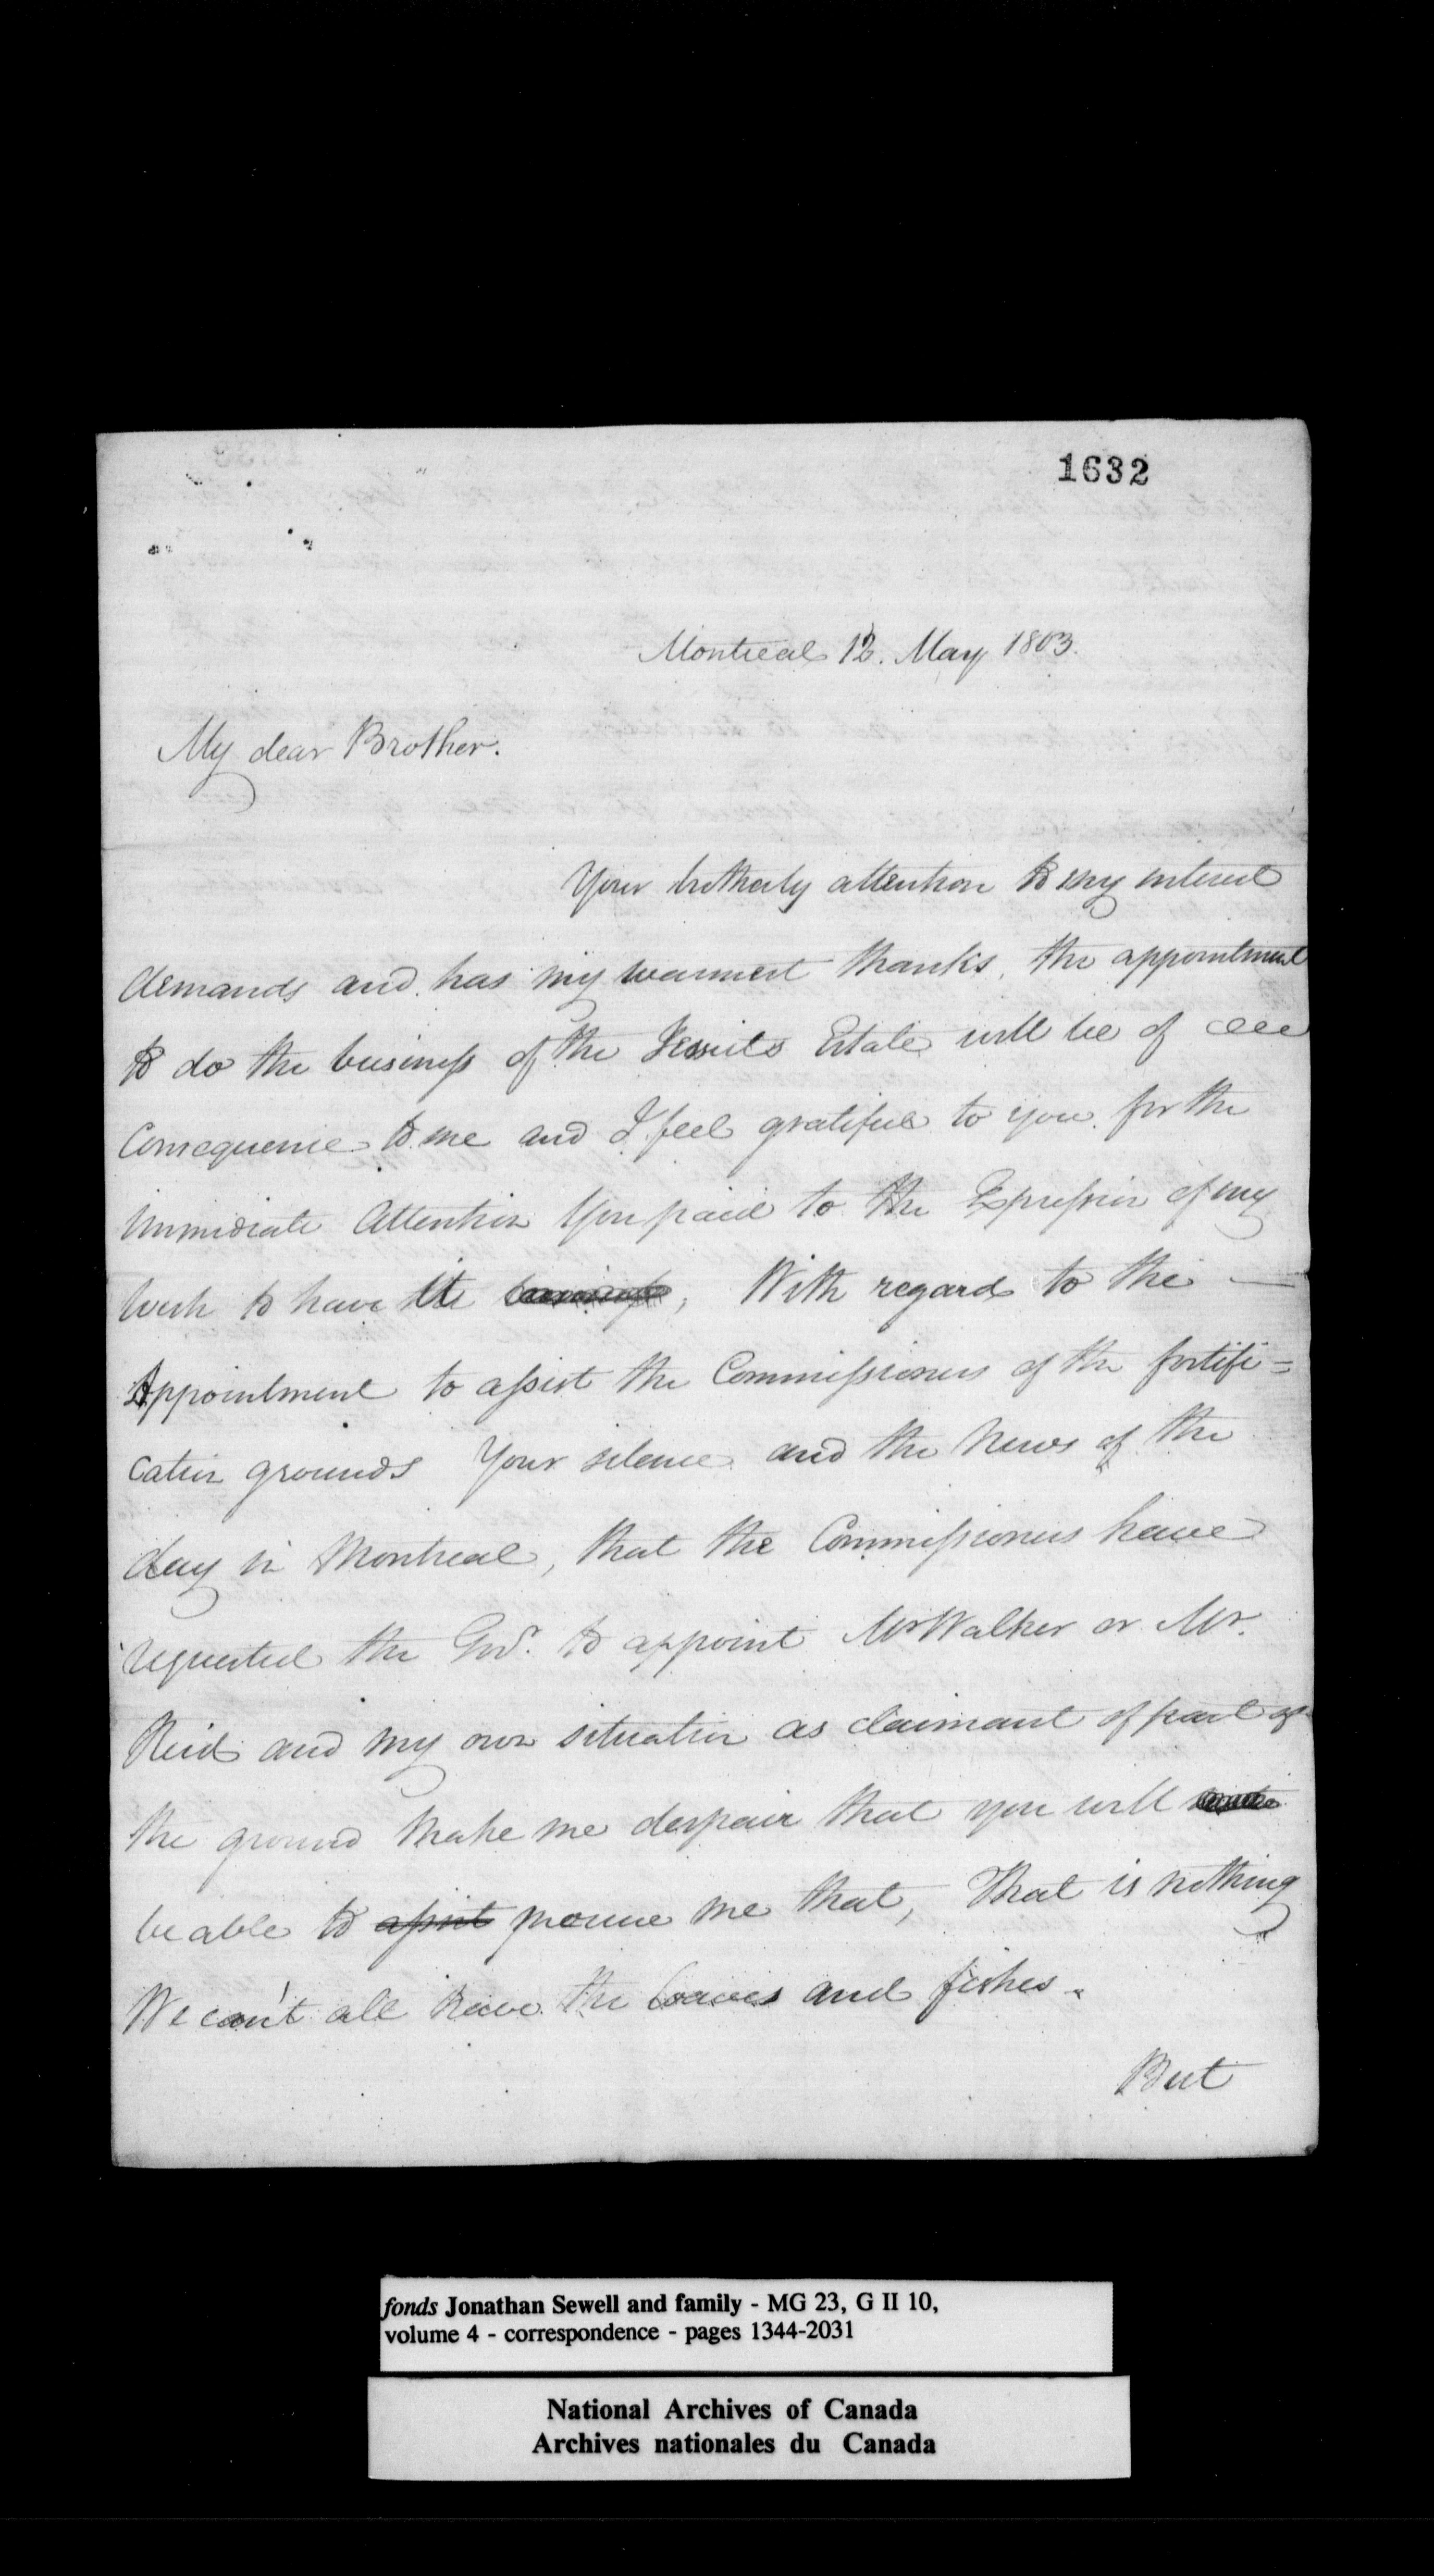 1632
Montreal 12. May 1803.
My dear Brother.
Your brotherly attention to my interest
demands and has my warmest thanks, the appointment
to do the business of the Jesuits Estate will be of
Consequence to me and I feel gratefull to you for the
immediate Attention You paid to the Expression of my
wish to have it , With regard to the —
Appointment to assist the Commissioners of the fortifi=
cation grounds Your silence and the News of the
day in Montreal, that the Commissioners have
requested the Govr. to appoint Mr Walker or Mr.
Reid and my own situation as claimant of part of
the ground make me despair that you will
be able to assist procure me that, That is nothing
We can't all have the loaves and fishes.
But
fonds Jonathan Sewell and family - MG 23, G II 10,
volume 4 - correspondence - pages 1344-2031
National Archives of Canada
Archives nationales du Canada